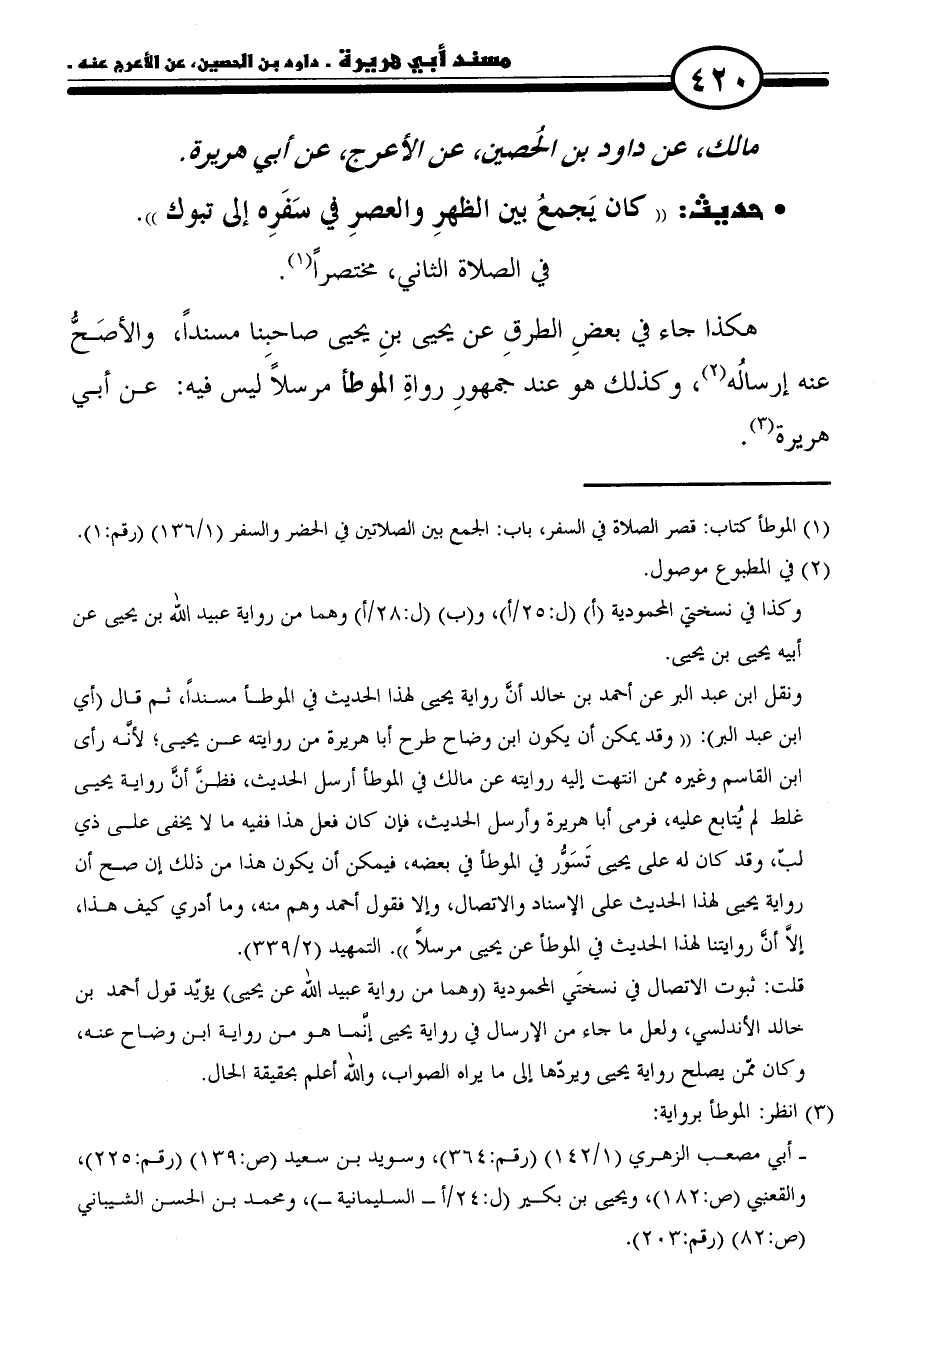 مسند أبي هريرة . داود بن الحصين، عن الأعرج عنه .
٤٢٠
مالك، عن داود بن الحُصين، عن الأعرج، عن أبي هريرة.
• حديث: (( كان يَجمعُ بين الظهرِ والعصرِ في سَفَرِه إلى تبوك )).
في الصلاة الثاني، مختصراً(١).
هكذا جاء في بعضِ الطرق عن يحيى بنِ يحيى صاحبِنا مسنداً، والأصَحُّ
عنه إرسالُه(٢)، وكذلك هو عند جمهورِ رواةِ الموطأ مرسلاً ليس فيه: عن أبي
هريرة(٣).
(١) الموطأ كتاب: قصر الصلاة في السفر، باب: الجمع بين الصلاتين في الحضر والسفر (١٣٦/١) (رقم:١).
(٢) في المطبوع موصول.
وكذا في نسختي المحمودية (أ) (ل:٢٥/أ)، و(ب) (ل:٢٨/أ) وهما من رواية عبيد الله بن يحيى عن
أبيه يحيى بن يحيى.
ونقل ابن عبد البر عن أحمد بن خالد أنَّ رواية يحيى لهذا الحديث في الموطأ مسنداً، ثم قال (أي
ابن عبد البر): (( وقد يمكن أن يكون ابن وضاح طرح أبا هريرة من روايته عن يحيى؛ لأنَّه رأى
ابن القاسم وغيره ممن انتهت إليه روايته عن مالك في الموطأ أرسل الحديث، فظنَّ أنَّ رواية يحيى
غلط لم يُتابع عليه، فرمى أبا هريرة وأرسل الحديث، فإن كان فعل هذا ففيه ما لا يخفى على ذي
لبّ، وقد كان له على يحيى تَسَوُّر في الموطأ في بعضه، فيمكن أن يكون هذا من ذلك إن صح أن
رواية يحيى لهذا الحديث على الإسناد والاتصال، وإلا فقول أحمد وهم منه، وما أدري كيف هذا،
إلاَّ أنَّ روايتنا لهذا الحديث في الموطأ عن يحيى مرسلاً )). التمهيد (٣٣٩/٢).
قلت: ثبوت الاتصال في نسختَي المحمودية (وهما من رواية عبيد الله عن يحيى) يؤيّد قول أحمد بن
خالد الأندلسي، ولعل ما جاء من الإرسال في رواية يحيى إنَّما هو من رواية ابن وضاح عنه،
وكان ممّن يصلح رواية يحيى ويردّها إلى ما يراه الصواب، والله أعلم بحقيقة الحال.
(٣) انظر: الموطأ برواية:
ـ أبي مصعب الزهري (١٤٢/١) (رقم:٣٦٤)، وسويد بن سعيد (ص:١٣٩) (رقم:٢٢٥)،
والقعنبي (ص:١٨٢)، ويحيى بن بكير (ل:٢٤/أ ـ السليمانية ـ)، ومحمد بن الحسن الشيباني
(ص:٨٢) (رقم:٢٠٣).